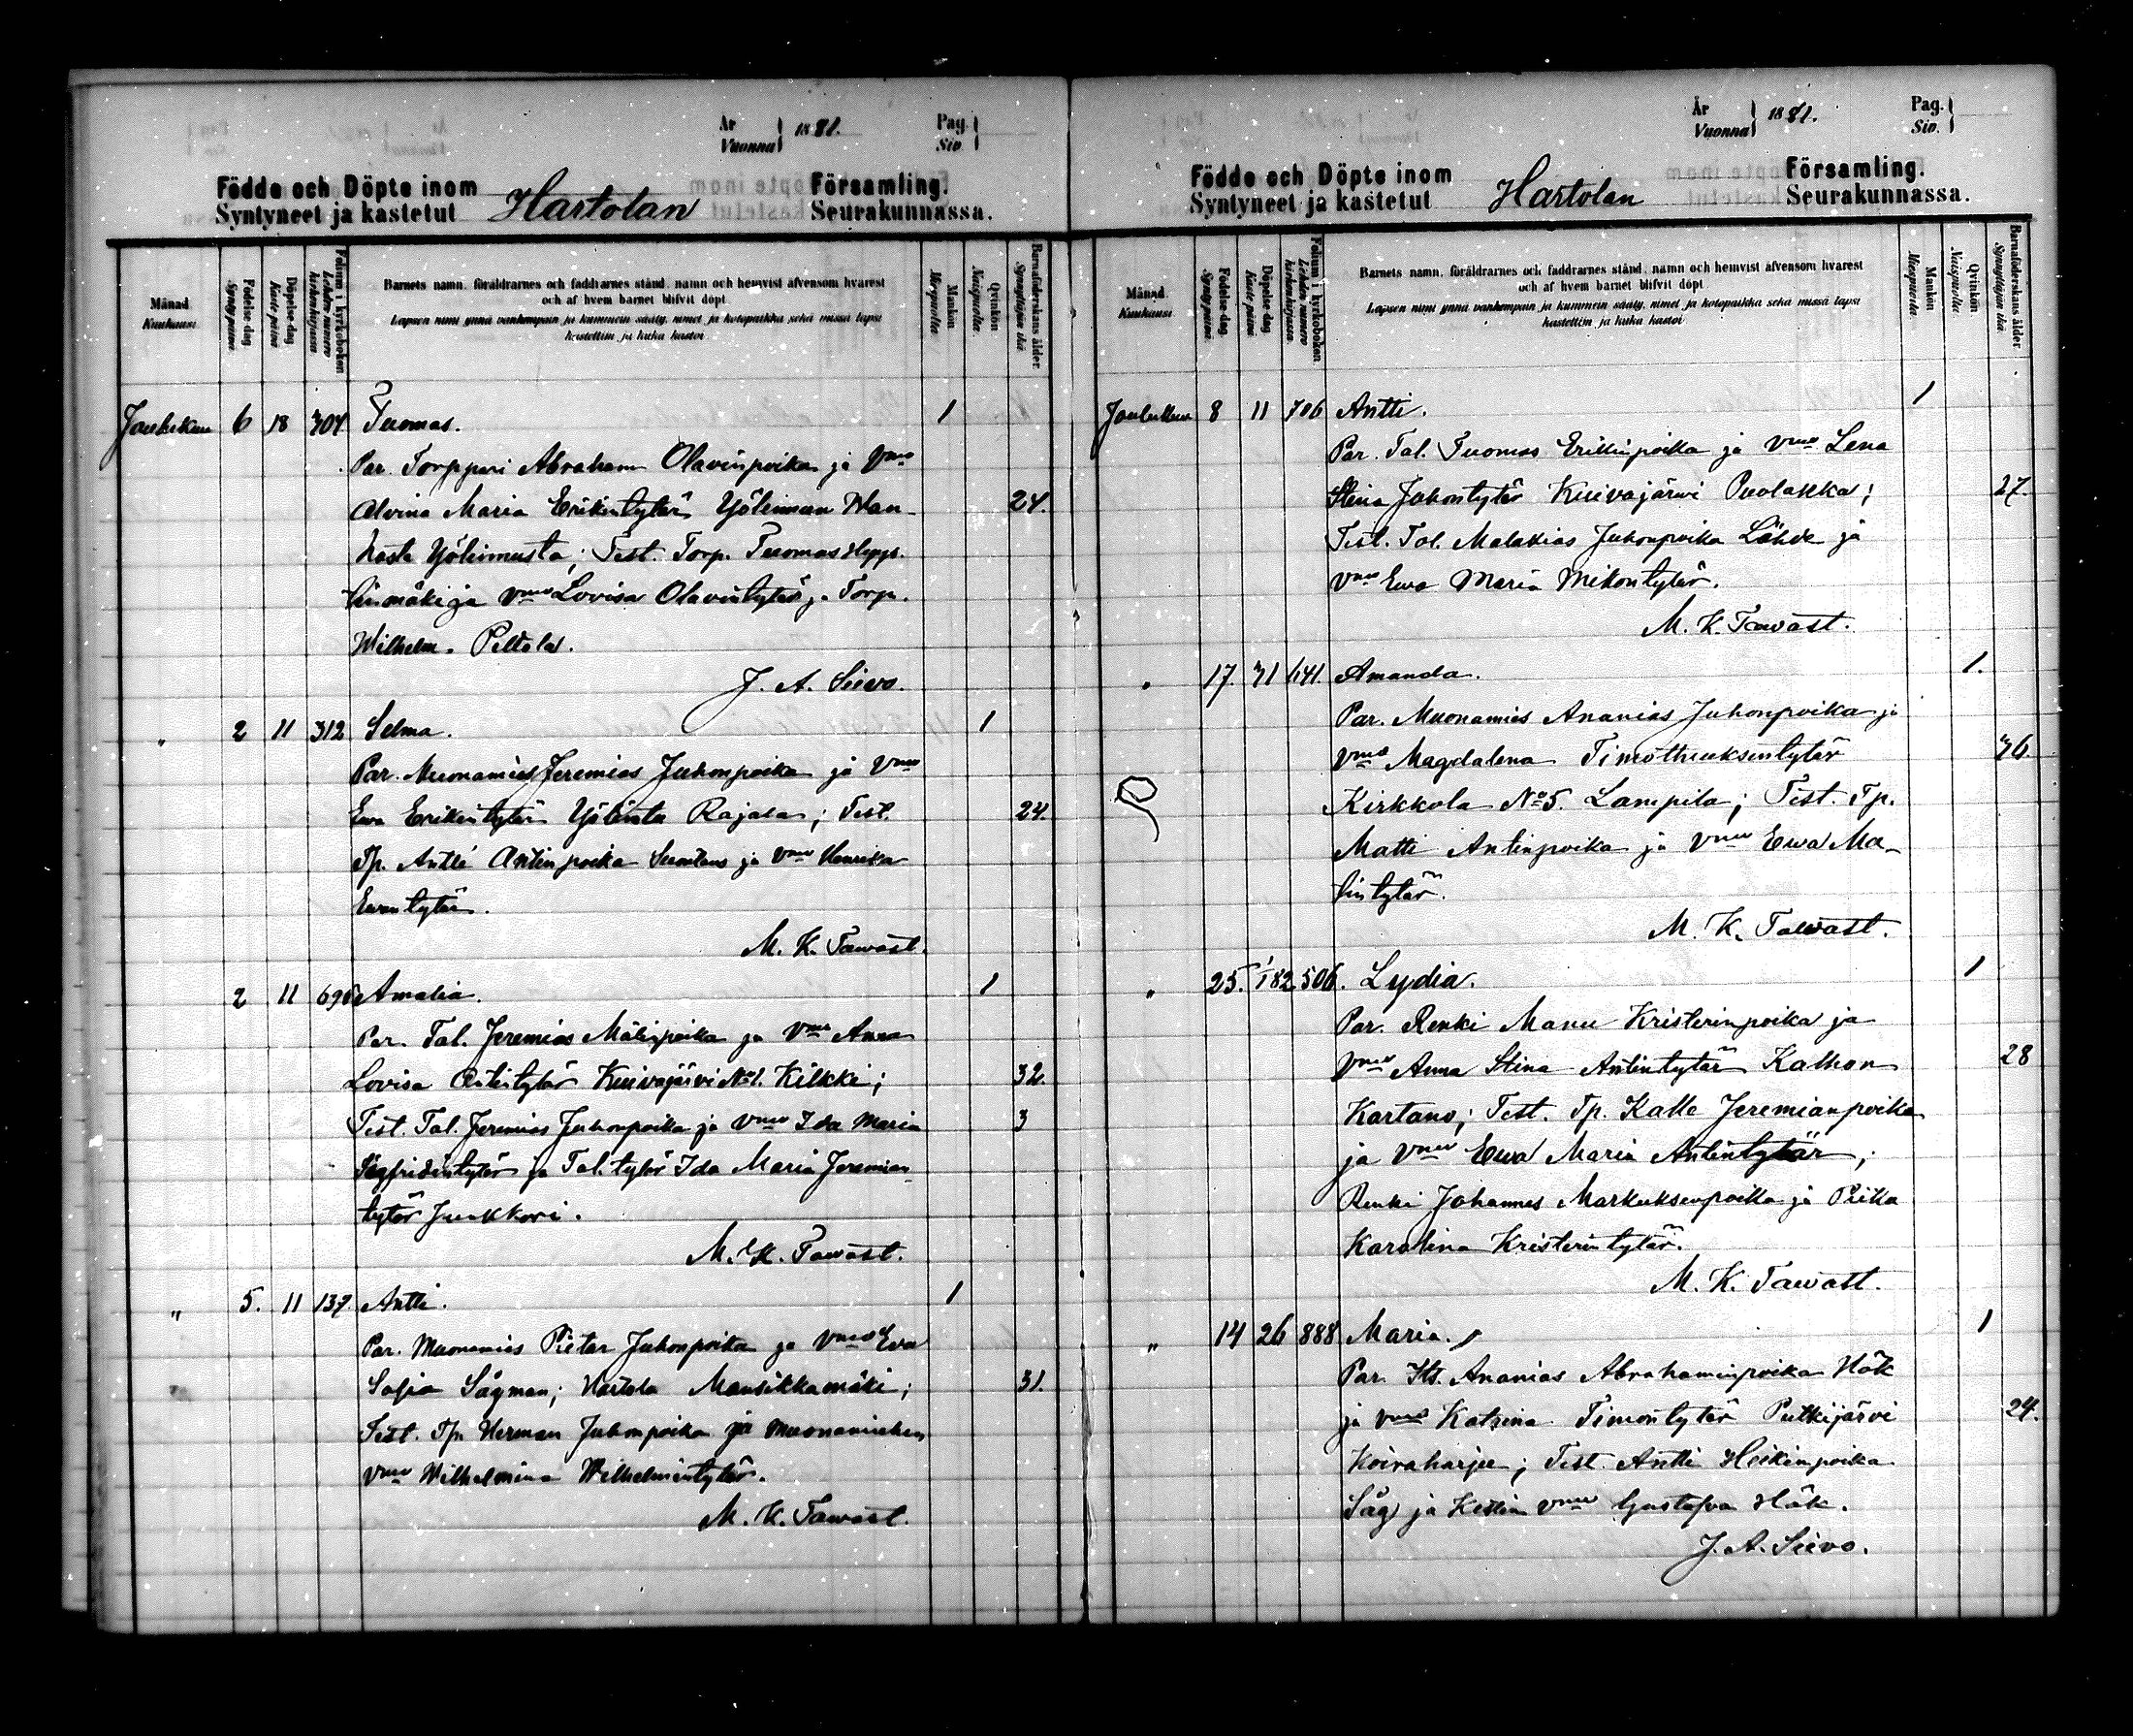 År
Vuonna 1881.
Pag.
Siv.
Födde och Döpte inom Församling.
Syntyneet ja kastetut Hartolan Seurakunnassa.
Månad
Kuukausi
Födelse-dag
Syntypäivä
Döpelse-dag
Kaste päivä
Folium i kyrkoboken
Lehden numero kirkonkirjassa
Barnets namn, föräldrarnes och faddrarnes stånd, namn och hemvist äfvensom hvarest
och af hvem barnet blifvit döpt
Lapsen nimi ynnä vanhempain ja kummein sääty, nimet ja kotopaikka sekä missä lapsi
kastettiin ja kuka kastoi
Mankön
Miespuolta
Qvinkön
Naispuolta
Barnaföderskans ålder
Synnyttäjän ikä
Joulukuu 6 18 704 Tuomas. 1
Par. Torppari Abraham Olavinpoika ja Vmo
Alvina Maria Erikintytär Yöleinnun 24.
Yöleimusta; Test. Torp. Tuomas
ja Vmo Lovisa Olavintytär ja Torp.
Wilhelm. Peltola.
J. A. Sievo.
" 2 11 312 Selma. 1
Par. Muonamies Jeremias Juhonpoika ja Vmo
Ewa Erikintytär Rajala; Test. 24.
Tp. Antti Antinpoika ja Vmo Henrika
Ewantytär.
M. K. Tawast.
2 11 695 Amalia. 1
Par. Tal. Jeremias Matinpoika ja Vmo Anna
Lovisa Antintytär Kuivajärvi No 1. Kilkki; 32
Test. Tal. Jeremias Juhonpoika ja Vmo Ida Maria 3
Sigfridintytär ja Tal. tytär Ida Maria Jeremian
tytär Junkkari.
M. K. Tawast.
" 5. 11 137. Antti. 1
Par. Muonamies Pietar Juhonpoika ja Vmo Eva
Sofia Sågman; Hartola Mansikkamäki; 31.
Test. Tp. Herman Juhonpoika ja Muonamiehen
Vmo Wilhelmina Wilhelmintytär.
M. K. Tawast.
År
Vuonna 1881.
Pag.
Siv.
Födde och Döpte inom Församling.
Syntyneet ja kastetut Hartolan Seurakunnassa.
Månad
Kuukausi
Födelse-dag
Syntypäivä
Döpelse-dag
Kaste päivä
Folium i kyrkoboken
Lehden numero kirkonkirjassa
Barnets namn, föräldrarnes och faddrarnes stånd, namn och hemvist äfvensom hvarest
och af hvem barnet blifvit döpt
Lapsen nimi ynnä vanhempain ja kummein sääty, nimet ja kotopaikka sekä missä lapsi
kastettiin ja kuka kastoi
Mankön
Miespuolta
Qvinkön
Naispuolta
Barnaföderskans ålder
Synnyttäjän ikä
Joulukuu 8 11 706 Antti. 1
Par. Tal. Tuomas Erikinpoika ja Vmo Lena
Stina Juhontytär Kuivajärwi Puolakka; 27.
Test. Tal. Malakias Juhonpoika Lähde ja
Vmo Ewa Maria Mikontytär.
M. K. Tawast.
" 17. 641. Amanda. 1.
Par. Muonamies Ananias Juhonpoika ja
Vmo Magdalena Timotheuksentytär
Kirkkola No 5. Lampila; Test. Tp.
Matti Antinpoika ja Vmo Ewa Ma-
tintytär.
M. K. Tawast.
" 25. 1/1 82 506. Lydia. 1
Par. Renki Manu Kristerinpoika ja
Vmo Anna Stina Antintytär Kalhon 28
Kartano; Test. Tp. Kalle Jeremianpoika
ja Vmo Ewa Maria Antintytär;
Renki Johannes Markuksenpoika ja Piika
Karolina Kristerintytär.
M. K. Tawast.
" 14 26 888 Maria. 1
Par. Its. Ananias Abrahaminpoika Hök
ja Vmo Katrina Timontytär Putkijärvi 24.
Koiraharju; Test. Antti Heikinpoika
Såg ja Vmo Gustafva Hök.
J. A. Sievo.